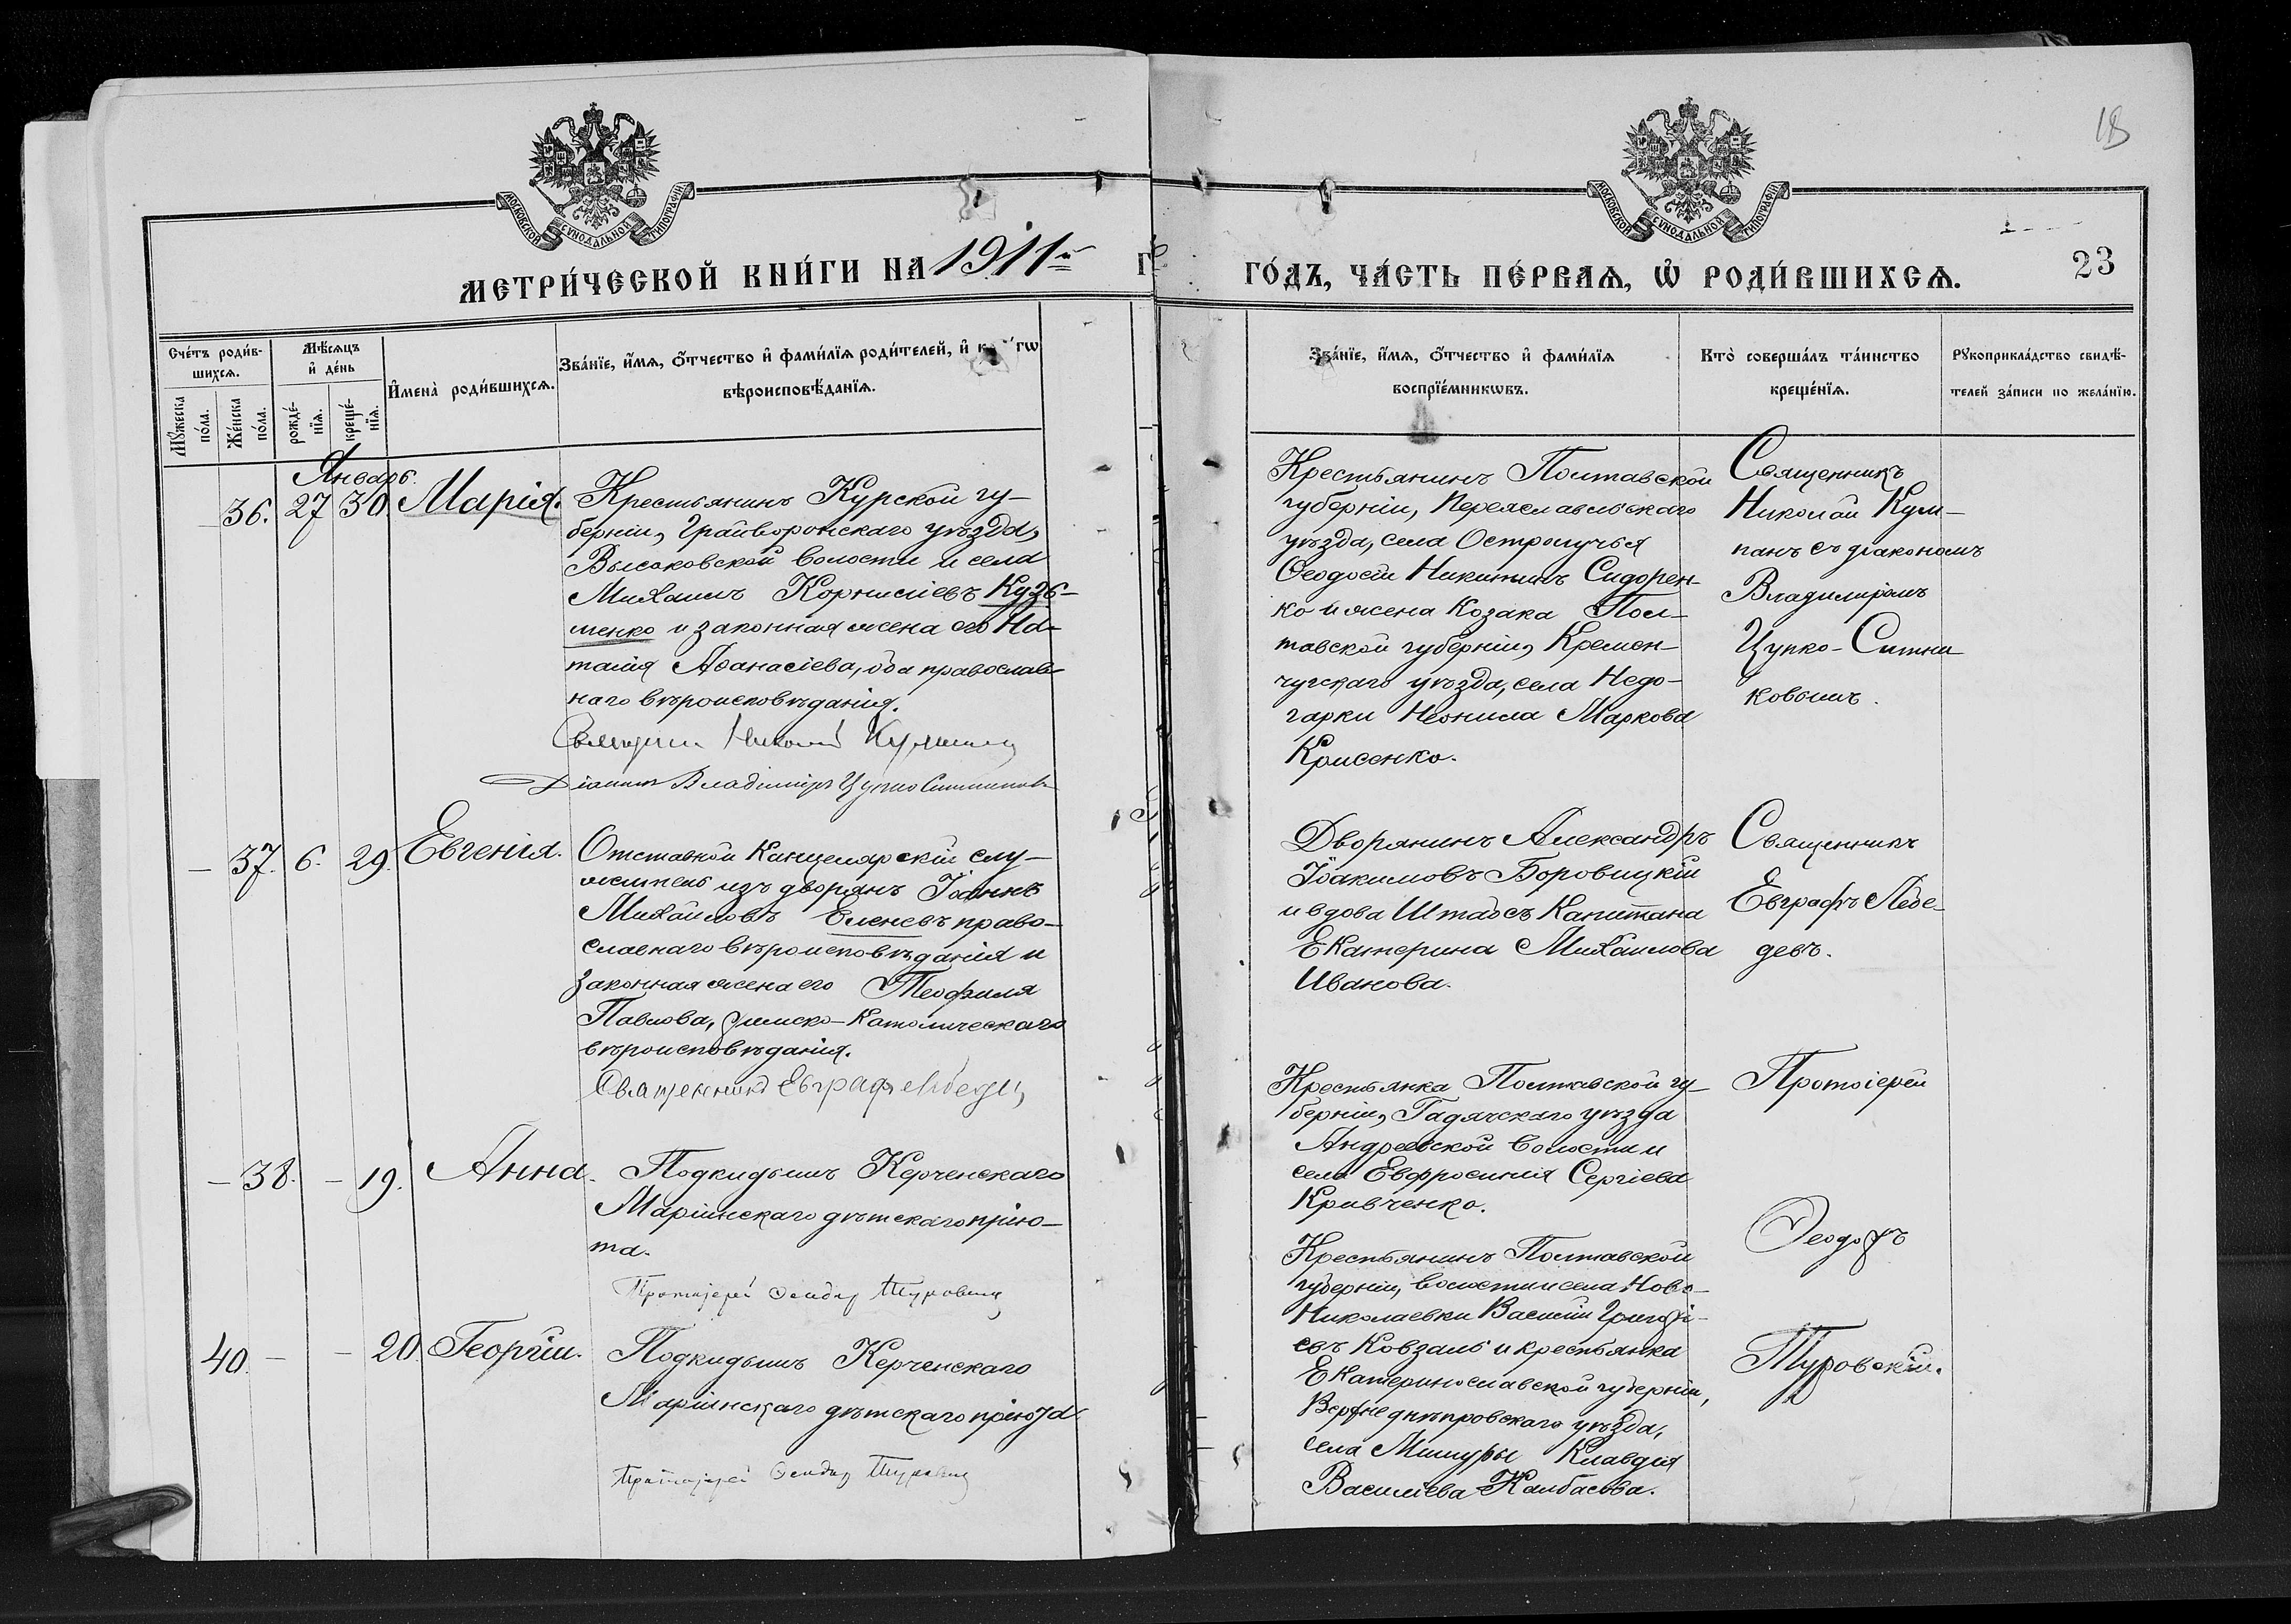 18
МОСКОВСКОЙ СѴНОДАЛЬНОЙ ТИПОГРАФІИ
МОСКОВСКОЙ СѴНОДАЛЬНОЙ ТИПОГРАФІИ
МЕТРИ́ЧЕСКОЙ КНИ́ГИ НА 1911й Г
ГО́ДЪ, ЧА́СТЬ ПЕ́РВАѦ, Ѽ РОДИ́ВШИХСѦ.
23
Сче́тъ роди́в-
шихсѧ.
Мѣ́сѧцъ
и҆ де́нь
И҆мена̀ роди́вшихсѧ.
Зва́нїе, и҆́мѧ, ѻ҆́тчество и҆ фами́лїѧ роди́телей, и҆
вѣроисповѣ́данїѧ.
Мꙋ́жеска
по́ла.
Же́нска
по́ла.
рожде́-
нїѧ.
креще́-
нїѧ.
Зва́нїе, и҆́мѧ, ѻ҆́тчество и҆ фами́лїѧ
воспрїе́мникѡвъ.
Кто̀ соверша́лъ та́инство
креще́нїѧ.
Рꙋкоприкла́дство свидѣ́-
телей за́писи по жела́нїю.
Январь.
— 36. 27 30. Марія.
Крестьянинъ Курской гу-
берніи, Грайворонскаго уѣзда,
Высоковской волости и села
Михаилъ Корнилiевъ Кузь-
менко и законная жена его На-
талія Аѳанасіева, оба православ-
наго вѣроисповѣданія.
Священникъ Николай Кумпанъ
Діаконъ Владиміръ Цупко Ситниковъ
Крестьянинъ Полтавской
губерніи, Переяславльскаго
уѣзда, села Остролучья
Ѳеодосій Никитинъ Сидорен-
ко и жена Козака Пол-
тавской губерніи, Кремен-
чугскаго уѣзда, села Недо-
гарки Неонила Маркова
Крисенко.
Священникъ
Николай Кум-
панъ съ діакономъ
Владиміромъ
Цупко-Ситни
ковымъ.
— 37. 6. 29. Евгенія.
Отставной Канцелярскій слу-
житель изъ дворянъ Іоаннъ
Михайловъ Еленевъ право-
славнаго вѣроисповѣданія и
законная жена его Теофиля
Павлова, римско-Католическаго
вѣроисповѣданія.
Священникъ Евграфъ Лебедевъ
Дворянинъ Александръ
Іоакимовъ Боровицкій
и вдова Штабсъ Капитана
Екатерина Михаилова
Иванова.
Священникъ
Евграфъ Лебе-
девъ.
— 38. — 19. Анна.
Подкидышъ Керченскаго
Маріинскаго дѣтскаго прію-
та.
Протоіерей Ѳеодоръ Туровскій
Крестьянка Полтавской гу-
берніи, Гадячскаго уѣзда
Андреевской волости и
села Евфросинія Сергіева
Кривченко.
Протоіерей
Ѳеодоръ
Туровскій.
40. — — 20. Георгій.
Подкидышъ Керченскаго
Маріинскаго дѣтскаго пріюта
Протоіерей Ѳеодоръ Туровскій
Крестьянинъ Полтавской
губерніи, волости и села Ново-
Николаевки Василій Григорі-
евъ Ковзаль и крестьянка
Екатеринославской губерніи,
Верхнеднѣпровскаго уѣзда,
села Мишуры Клавдія
Василіева Калбасова.